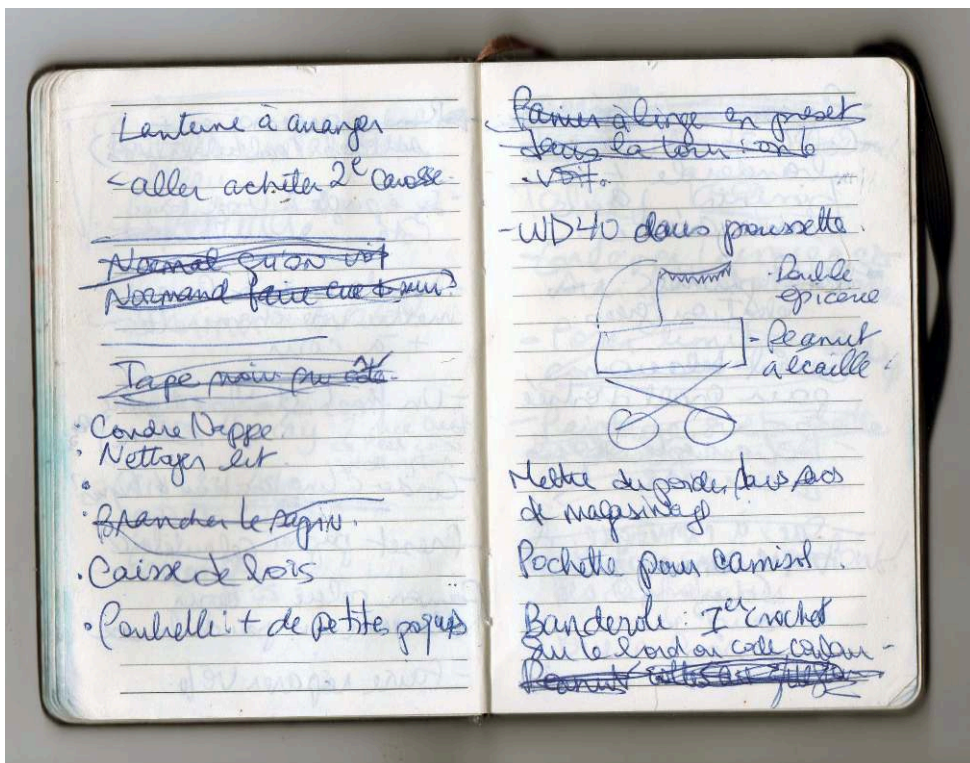 Lanterne à arranger
< aller acheter 2e carosse.
Normal qu'on voit
Normand faire
Tape noir sur côté.
• Coudre Nappe
• Nettoyer lit.
• Brancher le sapin.
• Caisse de bois
• Poubelle: + de petites
Panier à linge en preset
dans la on le
voit.
- WD40 dans poussette.
- Double
épicerie
- Peanut
écaille
Mettre du dans sacs
de magasinage
Pochette pour camisol.
Banderole: 7er crochet
Sur le bord ou code couleur -
Peanut